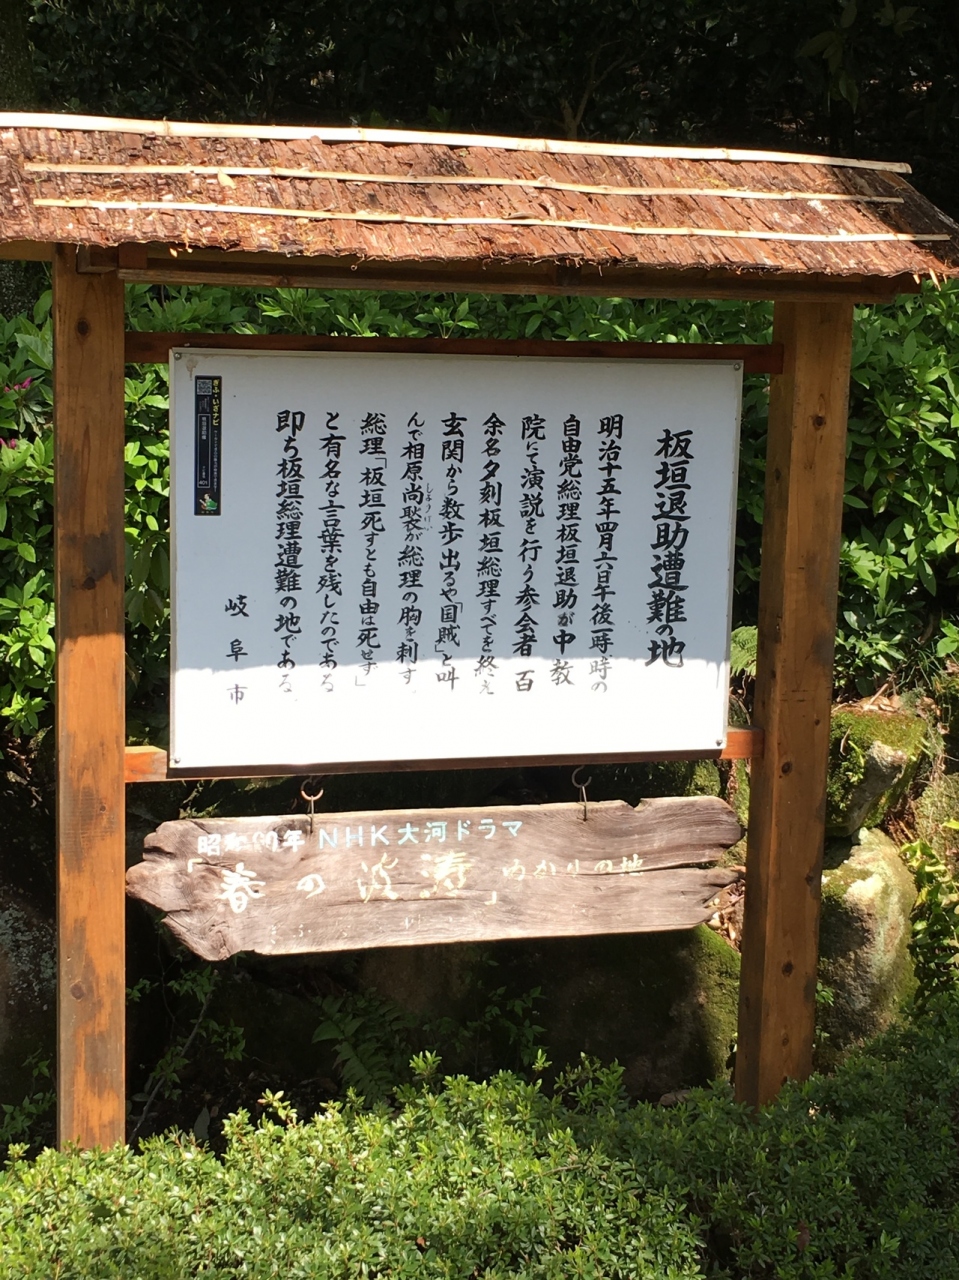 板垣退助遭難の地
明治十五年四月六日午後一時の
自由党総理板垣退助が中教
院にて演説を行う参会者百
余名夕刻板垣総理すべてを終え
玄関から数歩出るや「国賊」と叫
んで相原尚褧が総理の胸を刺す
しょうけい
総理「板垣死すとも自由は死せず」
と有名な言葉を残したのである
即ち板垣総理遭難の地である
岐阜市
ぎふ・いざナビ
昭和60年 NHK大河ドラマ
「春の波濤」ゆかりの地